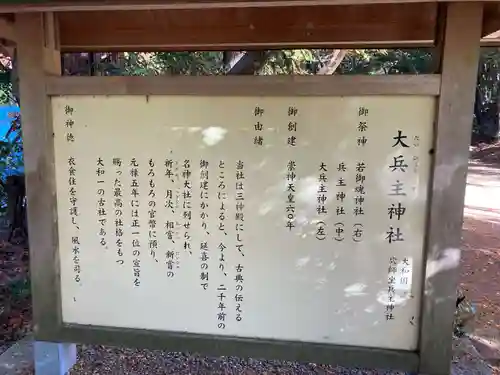 大兵主神社
穴師坐兵主神社
御祭神 若御魂神社(右)
兵主神社(中)
大兵主神社(左)
御創建 崇神天皇六〇年
御由緒
当社は三神殿にして、古典の伝える
ところによると、今より、二千年前の
御創建にかかり、延喜の制
名神大社に列せられ
祈年、月次、相嘗、新嘗の
もろもろの官幣に預り、
元禄五年には正一位の宣旨を
賜った最高の社格をもつ
大和一の古社である。
御神徳 衣食住を守護し、風水を司る。